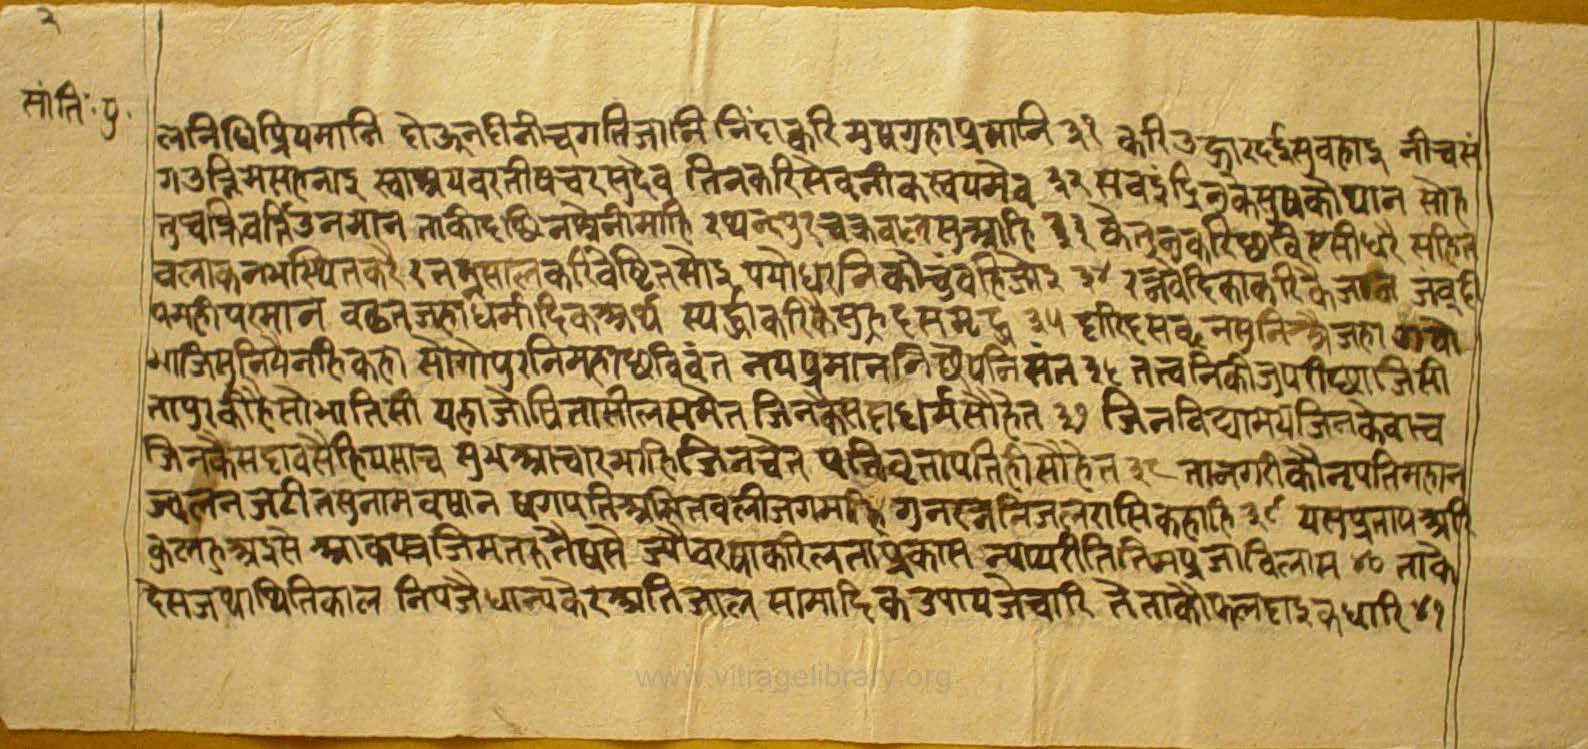 २
सांति॰ पु॰
लनिधिप्रियमानि दोऊनदीनीचगतिजानि निंदाकरि मुषग्रहाप्रमानि ३१ करि उद्गारदईसुवहाइ नीचसं
गउत्तिमसहनाइ स्वाश्रयवरतीषचरसुदेव तिनकरिसेवनीकस्वयमेव ३२ सवइंद्रिनुकेसुषकौथान सोहै
तुचक्रिवर्त्तिउनमान ताकीदछिनश्रेनीमाहि रथनूपुरचक्रवालसुआहि ३३ केतुनुकरि
वलाकनभस्थितकरै रतनुसालकरिवेष्टितसोइ पयोधरनिकौचुंवहिजोइ ३४ रत्नवेदिकाकरिकै जंवूदी
पमहीपरमान वढतजहाधर्मादिकअर्थ स्पर्द्धाकरिकैसुहृदसमृद्ध ३५ दारिदसवदनसुनि जहा
भाजिसुनियैनहिकहा सोगोपुरनिमहा नयप्रमाननि ३६ तत्वनिकीजुपरीष्याजिसी
तापुरकीहैसोभातिसी यहाजोषितासीलसमेत जिनकैसदाधर्मसौहेत ३७ जिनविद्यामयजिनकेवाच
जिनकैसदावसैहियसाच सुभआचारमाहिजिनचेत पतिवृतापतिहीसौहेत ३८ तानगरीकौनृपतिमहान
ज्वलनजटीतसुनामवषान षगपतिअमितवलीजगमाहि गुनरत्ननिजलरासिकहाहि ३९ यसप्रतापअरि
जिमतरु ज्यौवरषाकरिलताप्रकास न्यायरीतितिमप्रजाविलास ४० ताकै
देसजथाथितिकाल निपजैधान्यकैरअतिजाल सामादिकउपायजेचारि तेताकौफलदाइकधारि ४१
www.vitragelibrary.org